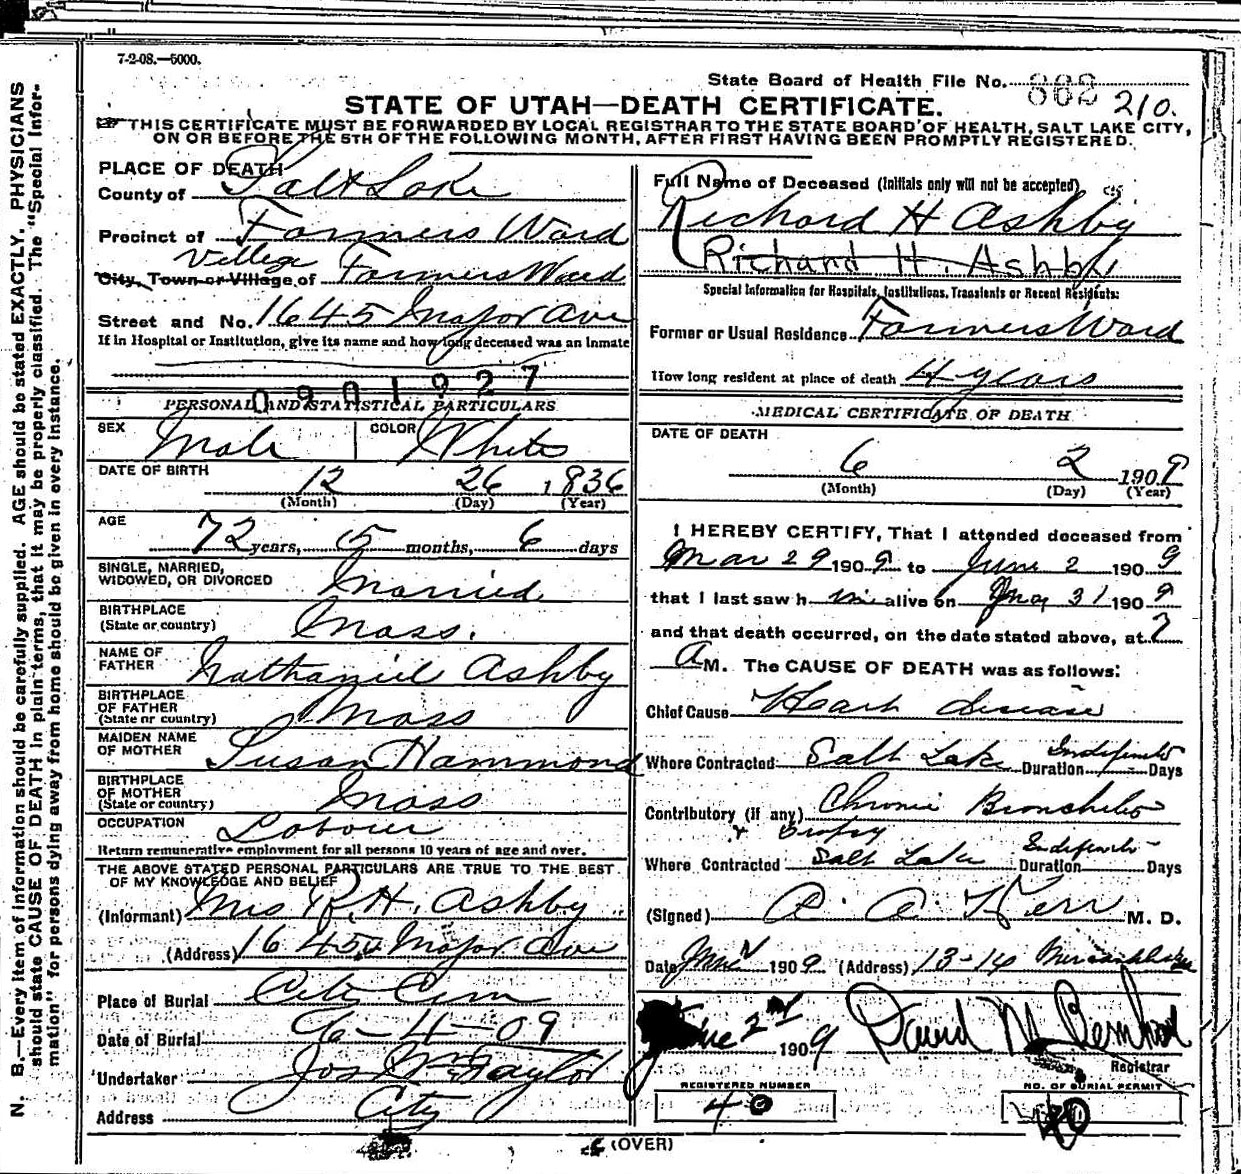 7-2-08.—5000.
State Board of Health File No. 862 210.
STATE OF UTAH—DEATH CERTIFICATE.
THIS CERTIFICATE MUST BE FORWARDED BY LOCAL REGISTRAR TO THE STATE BOARD OF HEALTH, SALT LAKE CITY,
ON OR BEFORE THE 5TH OF THE FOLLOWING MONTH, AFTER FIRST HAVING BEEN PROMPTLY REGISTERED.
N. B.—Every item of information should be carefully supplied. AGE should be stated EXACTLY. PHYSICIANS
should state CAUSE OF DEATH in plain terms, that it may be properly classified. The "Special Infor-
mation" for persons dying away from home should be given in every instance.
PLACE OF DEATH
County of Salt Lake
Precinct of Farmers Ward
Village
City, Town or Village of Farmers Ward
Street and No. 1645 Major Ave
If in Hospital or Institution, give its name and how long deceased was an inmate
0901927
PERSONAL AND STATISTICAL PARTICULARS
SEX Male COLOR White
DATE OF BIRTH
12 26 1836
(Month) (Day) (Year)
AGE
72 years, 5 months, 6 days
SINGLE, MARRIED,
WIDOWED, OR DIVORCED Married
BIRTHPLACE
(State or country) Mass.
NAME OF
FATHER Nathaniel Ashby
BIRTHPLACE
OF FATHER
(State or country) Mass
MAIDEN NAME
OF MOTHER Susan Hammond
BIRTHPLACE
OF MOTHER
(State or country) Mass
OCCUPATION Labourer
Return remunerative employment for all persons 10 years of age and over.
THE ABOVE STATED PERSONAL PARTICULARS ARE TRUE TO THE BEST
OF MY KNOWLEDGE AND BELIEF
(Informant) Mrs R. H. Ashby
(Address) 1645 Major Ave
Place of Burial City Cem
Date of Burial 6-4-09
Undertaker Jos Wm Taylor
Address City
Full Name of Deceased (Initials only will not be accepted)
Richard H Ashby
Richard H. Ashby
Special Information for Hospitals, Institutions, Transients or Recent Residents:
Former or Usual Residence Farmers Ward
How long resident at place of death 4 years
MEDICAL CERTIFICATE OF DEATH
DATE OF DEATH
6 2 1909
(Month) (Day) (Year)
I HEREBY CERTIFY, That I attended deceased from
Mar 29 1909 to June 2 1909
that I last saw him alive on May 31 1909
and that death occurred, on the date stated above, at 7
A M. The CAUSE OF DEATH was as follows:
Chief Cause Heart disease
Where Contracted Salt Lake Duration Indefinite Days
Contributory (if any) Chronic Bronchitis
& Dropsy
Where Contracted Salt Lake Duration Indefinite Days
(Signed) A. A. Kerr M. D.
Date June 2 1909 (Address) 13-14
June 2nd 1909 David
Registrar
REGISTERED NUMBER
40
NO. OF BURIAL PERMIT
40
(OVER)